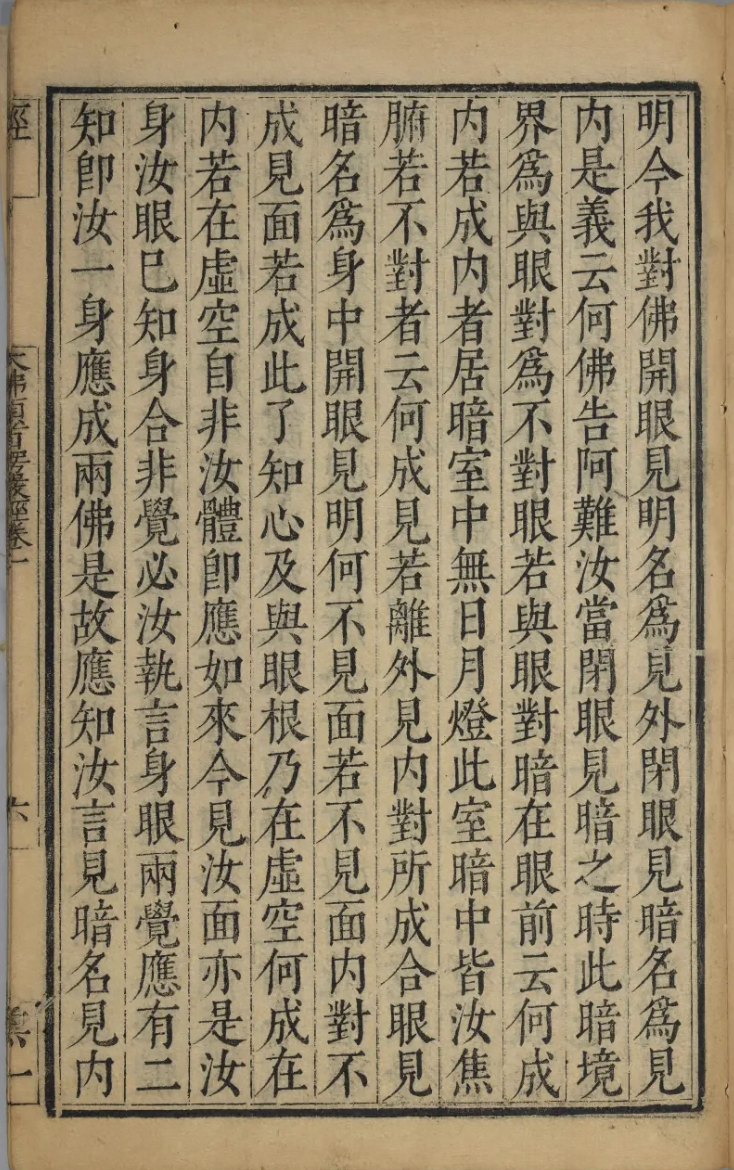 明今我對佛開眼見明名爲見外閉眼見暗名爲見
内是義云何佛告阿難汝當閉眼見暗之時此暗境
界爲與眼對爲不對眼若與眼對暗在眼前云何成
内若成内者居暗室中無日月燈此室暗中皆汝焦
腑若不對者云何成見若離外見内對所成合眼見
暗名爲身中開眼見明何不見面若不見面内對不
成見面若成此了知心及與眼根乃在虛空何成在
内若在虛空自非汝體卽應如來今見汝面亦是汝
身汝眼巳知身合非覺必汝執言身眼兩覺應有二
知卽汝一身應成兩佛是故應知汝言見暗名見内
經
大佛頂首楞嚴經卷一
六